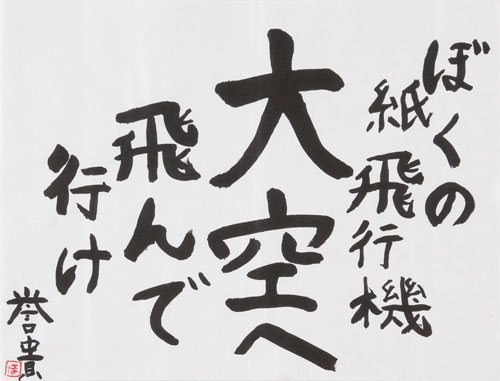 ぼくの
紙飛行機
大空へ
飛んで
行け
誉貴
ほ